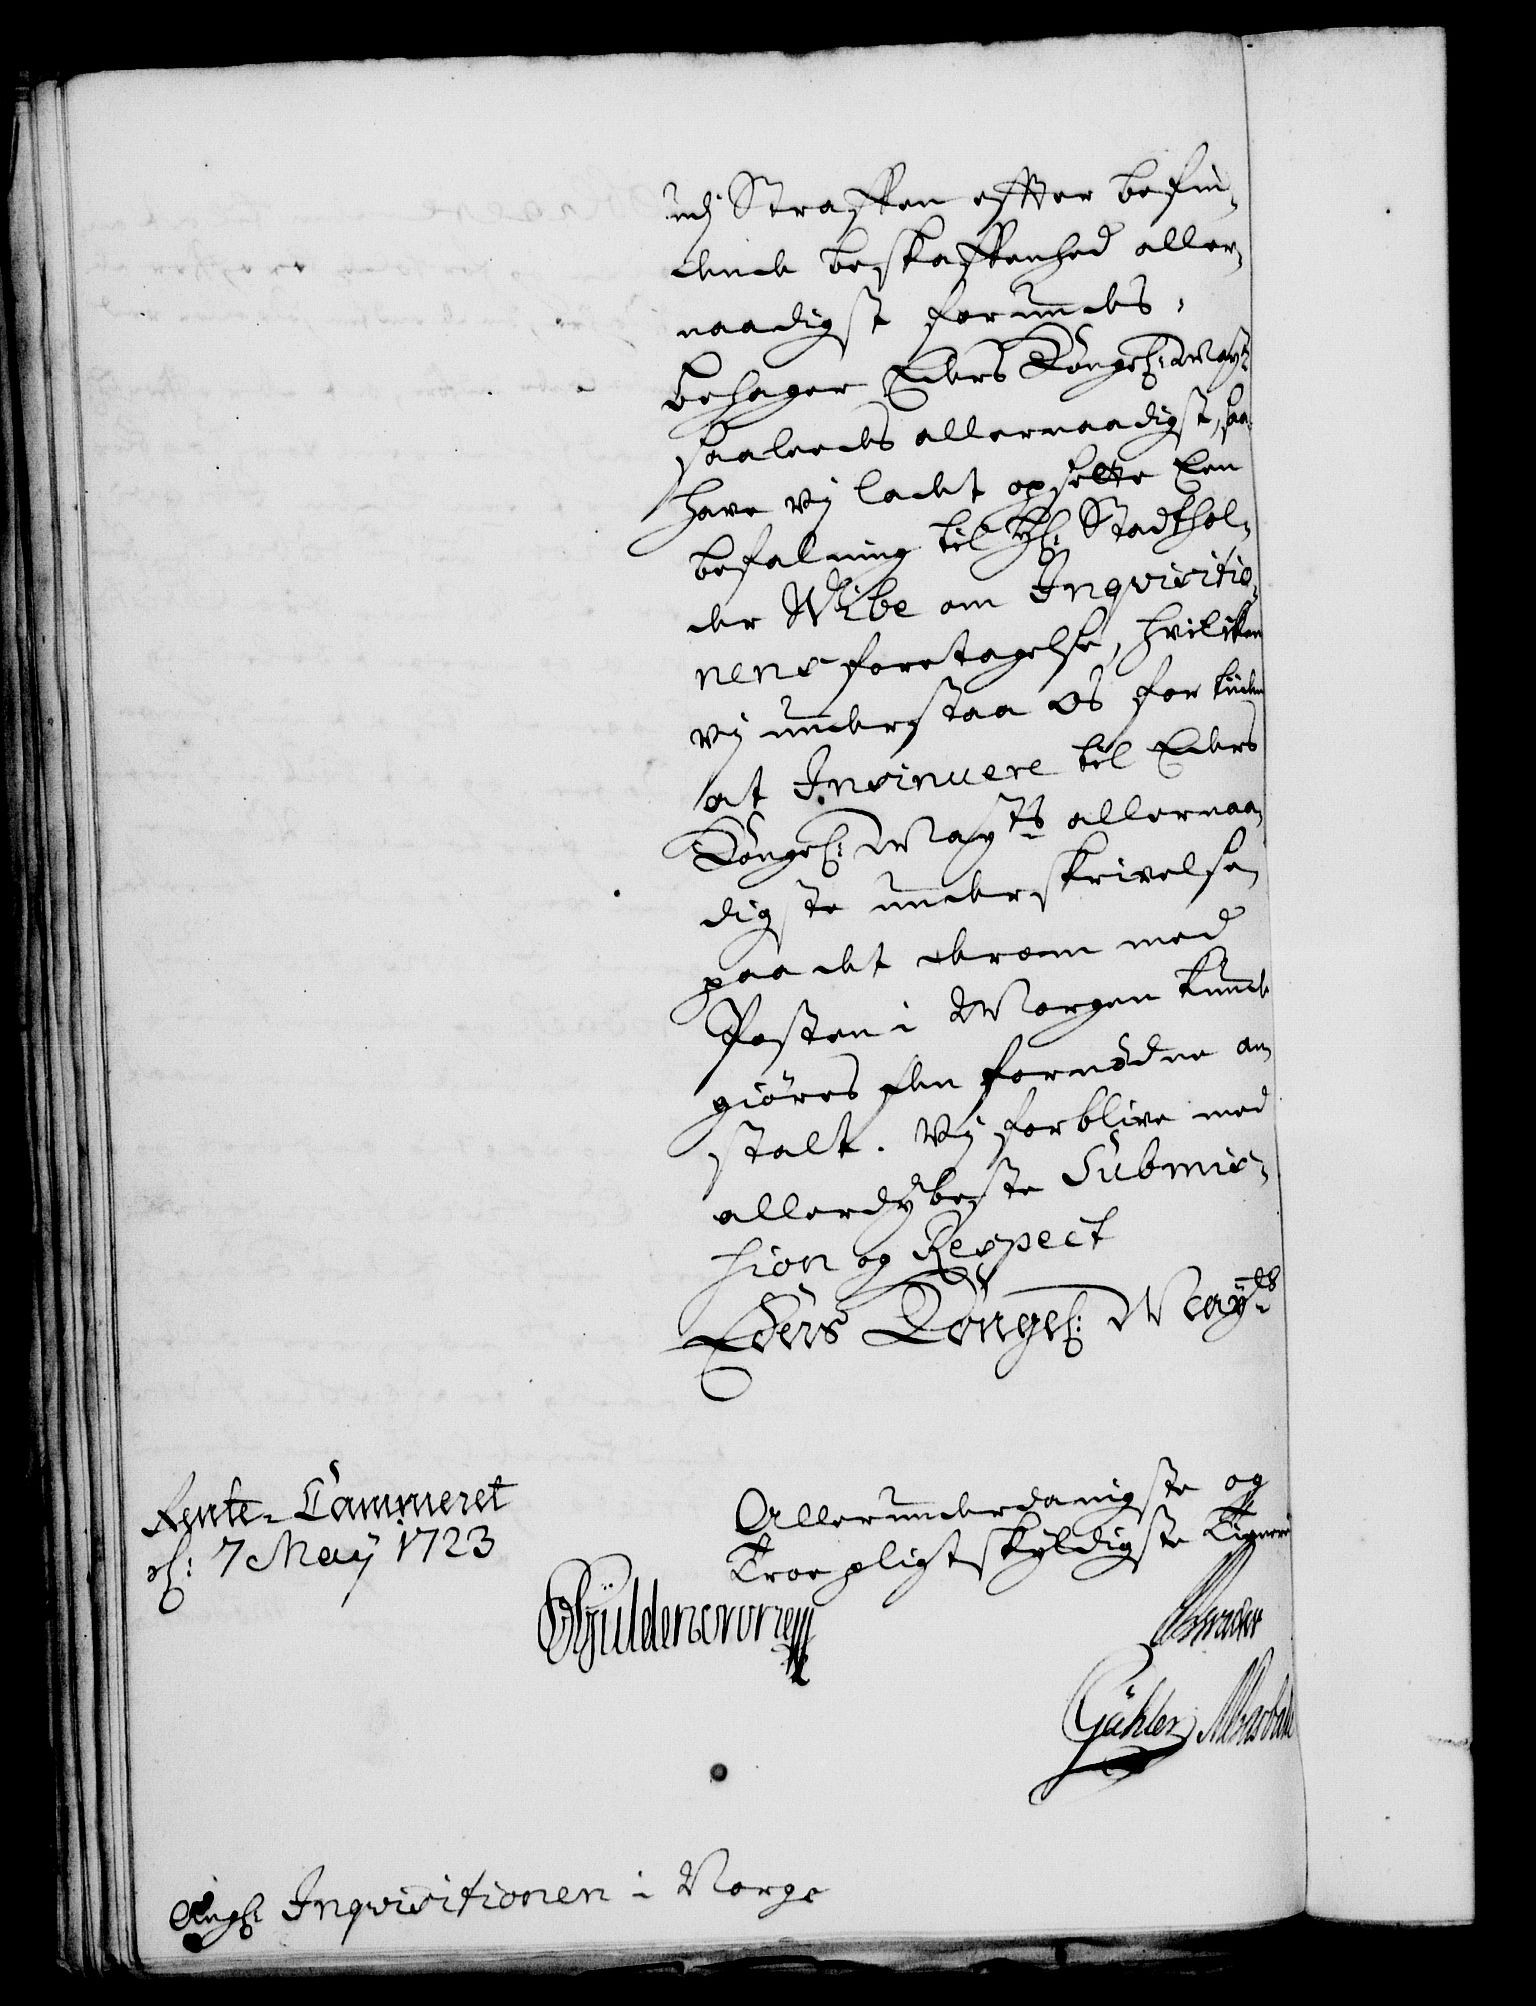 udj Straffen effter befin-
dende beskaffenhed aller-
naadigst forundes,
behager Eders Kongel: May:ts
saaledes allernaadigst, saa
have vj ladet opsette Een
befalning til H: Stadthol-
der Wibe om Inqvisitio-
nens foretagelse, hvilcken
vj understaa os for tiiden
at Insinuere til Eders
Kongel: May:ts allernaa-
digste underskrivelse,
paa det derom med
Posten i Morgen kunde
giøres den fornødne an
stalt. Vj forblive med
allerdybeste Submis-
sion og Respect
Eders Kongel: May:ts
Allerunderdanigste og
Troepligtskyldigste Tienere
Rente-Cammeret
d: 7 Maÿ 1723
Gÿldencrone
Gähler
Ang: Inqvisitionen i Norge